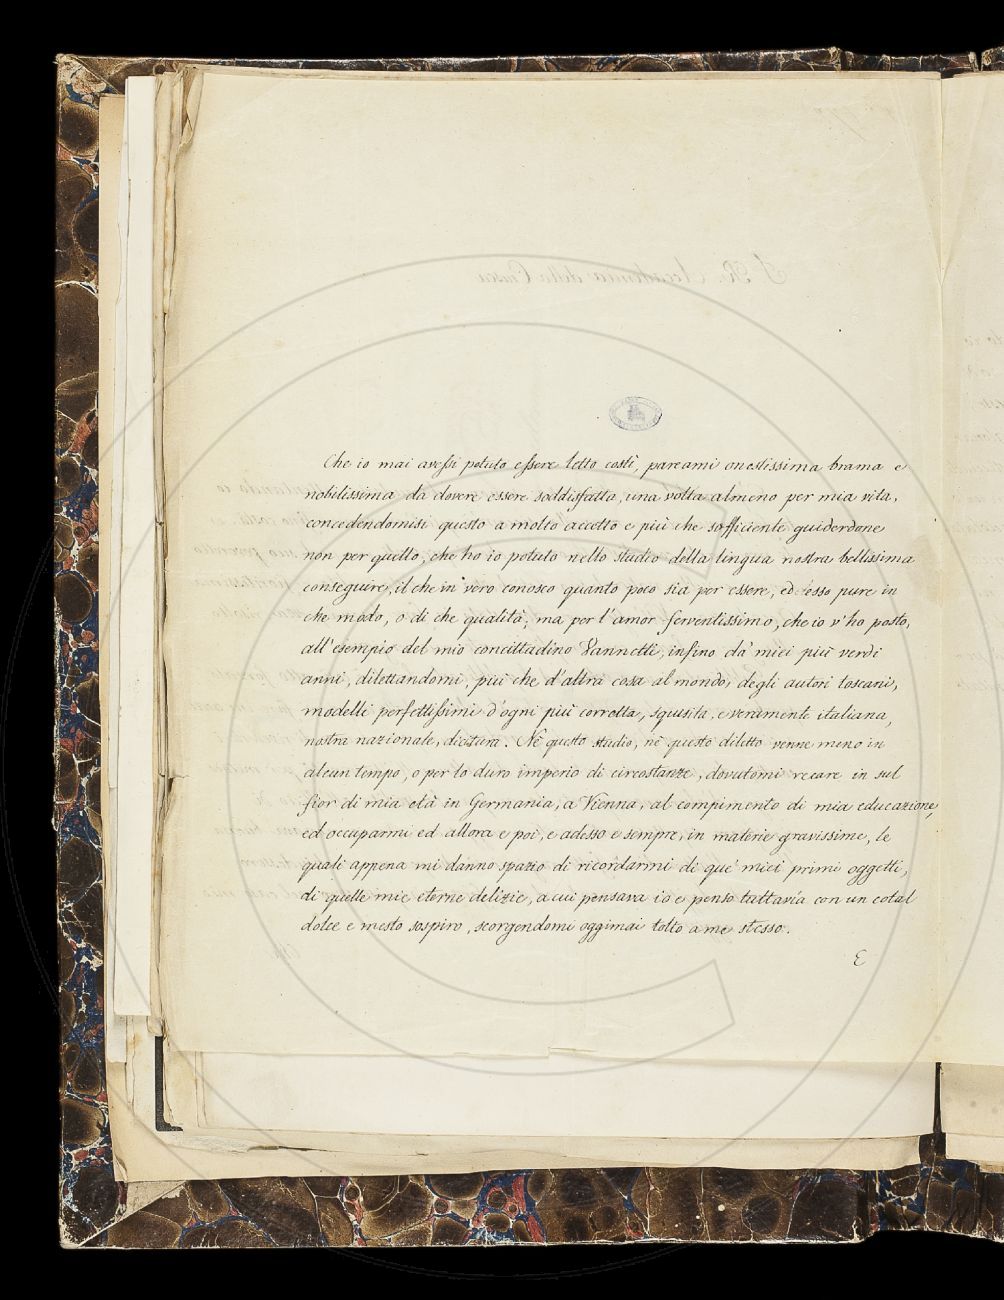 Che io mai avessi potuto essere letto costì, pareami onestissima brama e
nobilissima da dovere essere soddisfatta, una volta almeno per mia vita,
concedendomisi questo a molto accetto e più che sofficiente guiderdone
non per quello, che ho io potuto nello studio della lingua nostra bellissima
conseguire, il che in vero conosco quanto poco sia per essere, ed esso pure in
che modo, o di che qualità; ma per l'amor ferventissimo, che io v'ho posto,
all'esempio del mio concittadino Vannetti, infino da' miei più verdi
anni, dilettandomi, più che d'altra cosa al mondo, degli autori toscani,
modelli perfettissimi d'ogni più corretta, squisita, e veramente italiana,
nostra nazionale, dicitura. Nè questo studio, nè questo diletto venne meno in
alcun tempo, o per lo duro imperio di circostanze, dovutomi recare in sul
fior di mia età in Germania, a Vienna, al compimento di mia educazione,
ed occuparmi ed allora e poi, e adesso e sempre, in materie gravissime, le
quali appena mi danno spazio di ricordarmi di que' miei primi oggetti,
di quelle mie eterne delizie, a cui pensava io e penso tuttavía con un cotal
dolce e mesto sospiro, scorgendomi oggimai tolto a me stesso.
E